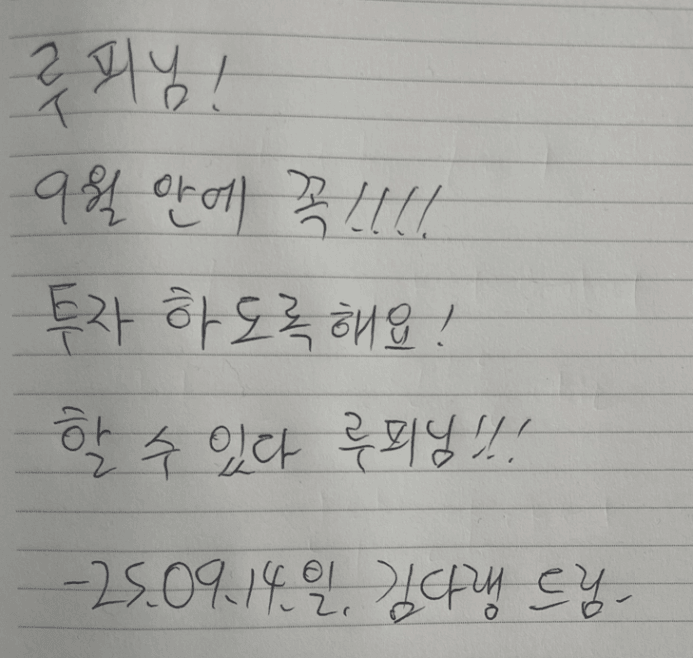 루피님!
9월 안에 꼭!!!!
투자 하도록해요!
할 수 있다 루피님!!!
-25.09.14.일. 김다랭 드림-